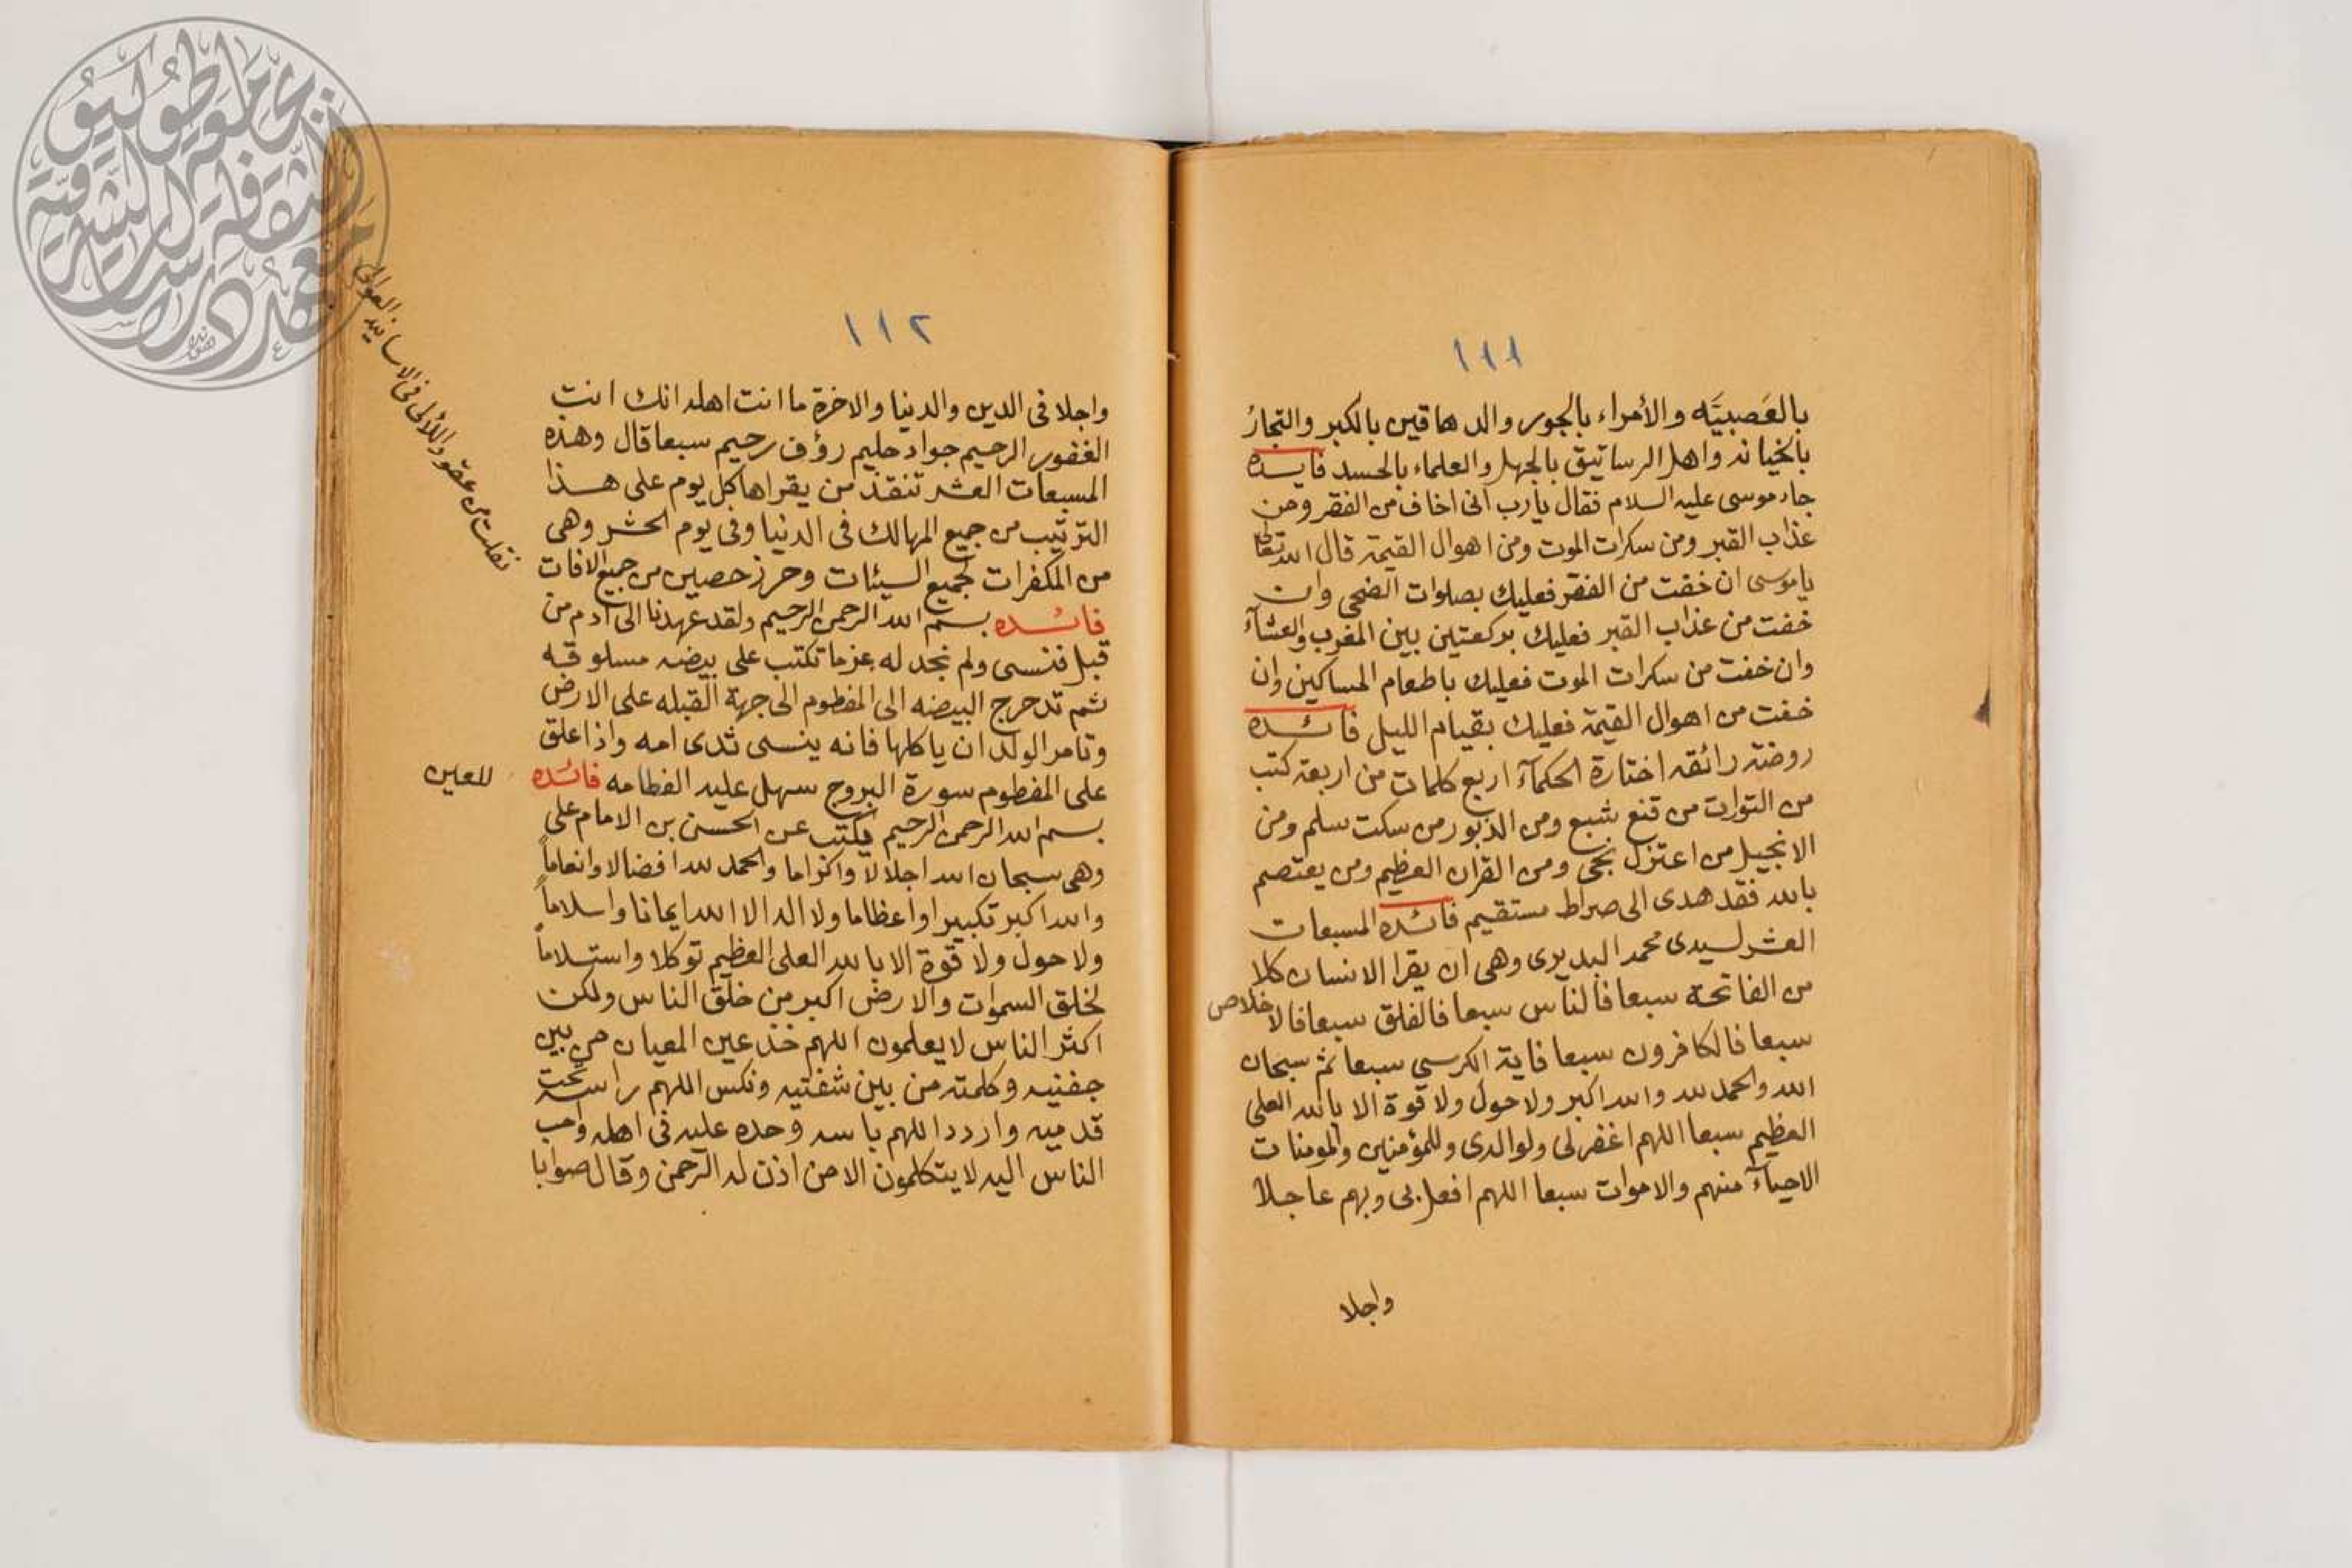 ١١١
بالعَصبيَّه والأمراء بالجور والدهاقين بالكبر والتجارُ
بالخيانه واهل الرساتيق بالجهل والعلماء بالحسد فايده
جاء موسى عليه السلام فقال يارب انى اخاف من الفقر ومن
عذاب القبر ومن سكرات الموت ومن اهوال القيمة قال الله تعالى
ياموسى ان خفت من الفقر فعليك بصلوات الضحى وان
خفت من عذاب القبر فعليك بركعتين بين المغرب والعشآء
وان خفت من سكرات الموت فعليك باطعام المساكين وان
خفت من اهوال القيمة فعليك بقيام الليل فائده
روضة رائقه اختارة الحكمآء اربع كلمات من اربعة كتب
من التورات من قنع شبع ومن الزبور من سكت سلم ومن
الانجيل من اعتزل نجى ومن القران العظيم ومن يعتصم
بالله فقد هدى الى صراط مستقيم فائده المسبعات
العشر لسيدى محمد البديرى وهى ان يقرا الانسان كلا
من الفاتحة سبعا فالناس سبعا فالفلق سبعا فالاخلاص
سبعا فالكافرون سبعا فاية الكرسى سبعا ثم سبحان
الله والحمد لله والله اكبر ولا حول ولا قوة الا بالله العلى
العظيم سبعا اللهم اغفرلى ولوالدى وللمؤمنين والمومنات
الاحيآء منهم والاموات سبعا اللهم افعل بى وبهم عاجلا
واجلا
١١٢
واجلا فى الدين والدنيا والاخرة ما انت اهله انك انت
الغفور الرحيم جواد حليم رؤف رحيم سبعا قال وهذه
المسبعات العشر تنقذ من يقراها كل يوم على هذا
الترتيب من جميع المهالك فى الدنيا وفى يوم الحشر وهى
من المكفرات لجميع السيئات وحرز حصين من جميع الافات
فائده بسم الله الرحمن الرحيم ولقد عهدنا الى ادم من
قبل فنسى ولم نجد له عزما تكتب على بيضه مسلوقه
ثم تدحرج البيضه الى المفطوم الى جهة القبله على الارض
وتامر الولد ان ياكلها فانه ينسى ثدى امه واذا علق
على المفطوم سورة البروج سهل عليه الفطامه فائده
للعين
بسم الله الرحمن الرحيم يكتب عن الحسن بن الامام على
وهى سبحان الله اجلالا واكراما والحمد لله افضالا وانعاماً
والله اكبر تكبيرا واعظاما ولا اله الا الله ايمانا واسلاماً
ولا حول ولا قوة الا بالله العلى العظيم توكلا واستسلاماً
لخلق السموات والارض اكبر من خلق الناس ولكن
اكثر الناس لا يعلمون اللهم خذ عين المعيان من بين
جفنيه وكلمته من بين شفتيه ونكس اللهم راسه تحت
قدميه واردد اللهم باسه وحده عليه فى اهله واحب
الناس اليه لا يتكلمون الا من اذن له الرحمن وقال صوابا
نقلت من عقود اللألى فى الاسانيد العوالى
معهد دراسات الثقافة الشرقية بجامعة طوكيو